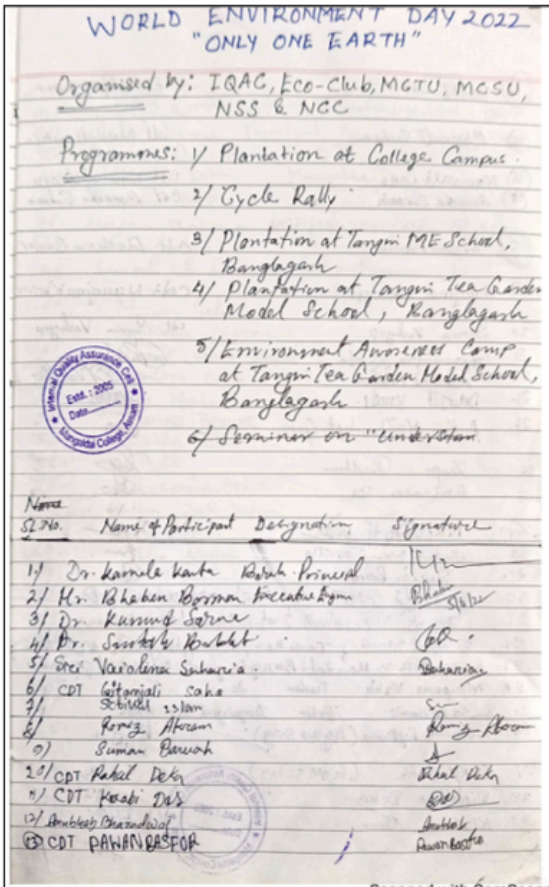 WORLD ENVIRONMENT DAY 2022
"ONLY ONE EARTH"
Organised by: IQAC, Eco-Club, MCTU, MCSU,
NSS & NCC
Programmes: 1/ Plantation at College Campus.
2/ Cycle Rally
3/ Plantation at Tangni ME School,
Banglagarh
4/ Plantation at Tangni Tea Garden
Model School, Banglagarh
5/ Environment Awareness Camp
at Tangni Tea Garden Model School,
Banglagarh
6/ Seminar on "Understan
Internal Quality Assurance Cell
Estd.: 2005
Date
Mangaldai College, Assam
Name
Sl. No. Name of Participant Designation Signature
1/ Dr. Kamala Kanta Borah Principal
2/ Mr. Bhaben Borman Executive 5/6/22
3/ Dr. Kumud
4/ Dr. Santosh
5/ Suharia Suharia
6/ CDT Gitanjali Saha
7/ Islam
8/ Ramiz Ramiz
9) Suman Baruah
10/ CDT Rahul Deka Rahul Deka
11/ CDT Das
12/ Anublosh Bharadwaj
13 CDT PAWAN BASFOR Pawan Basfor